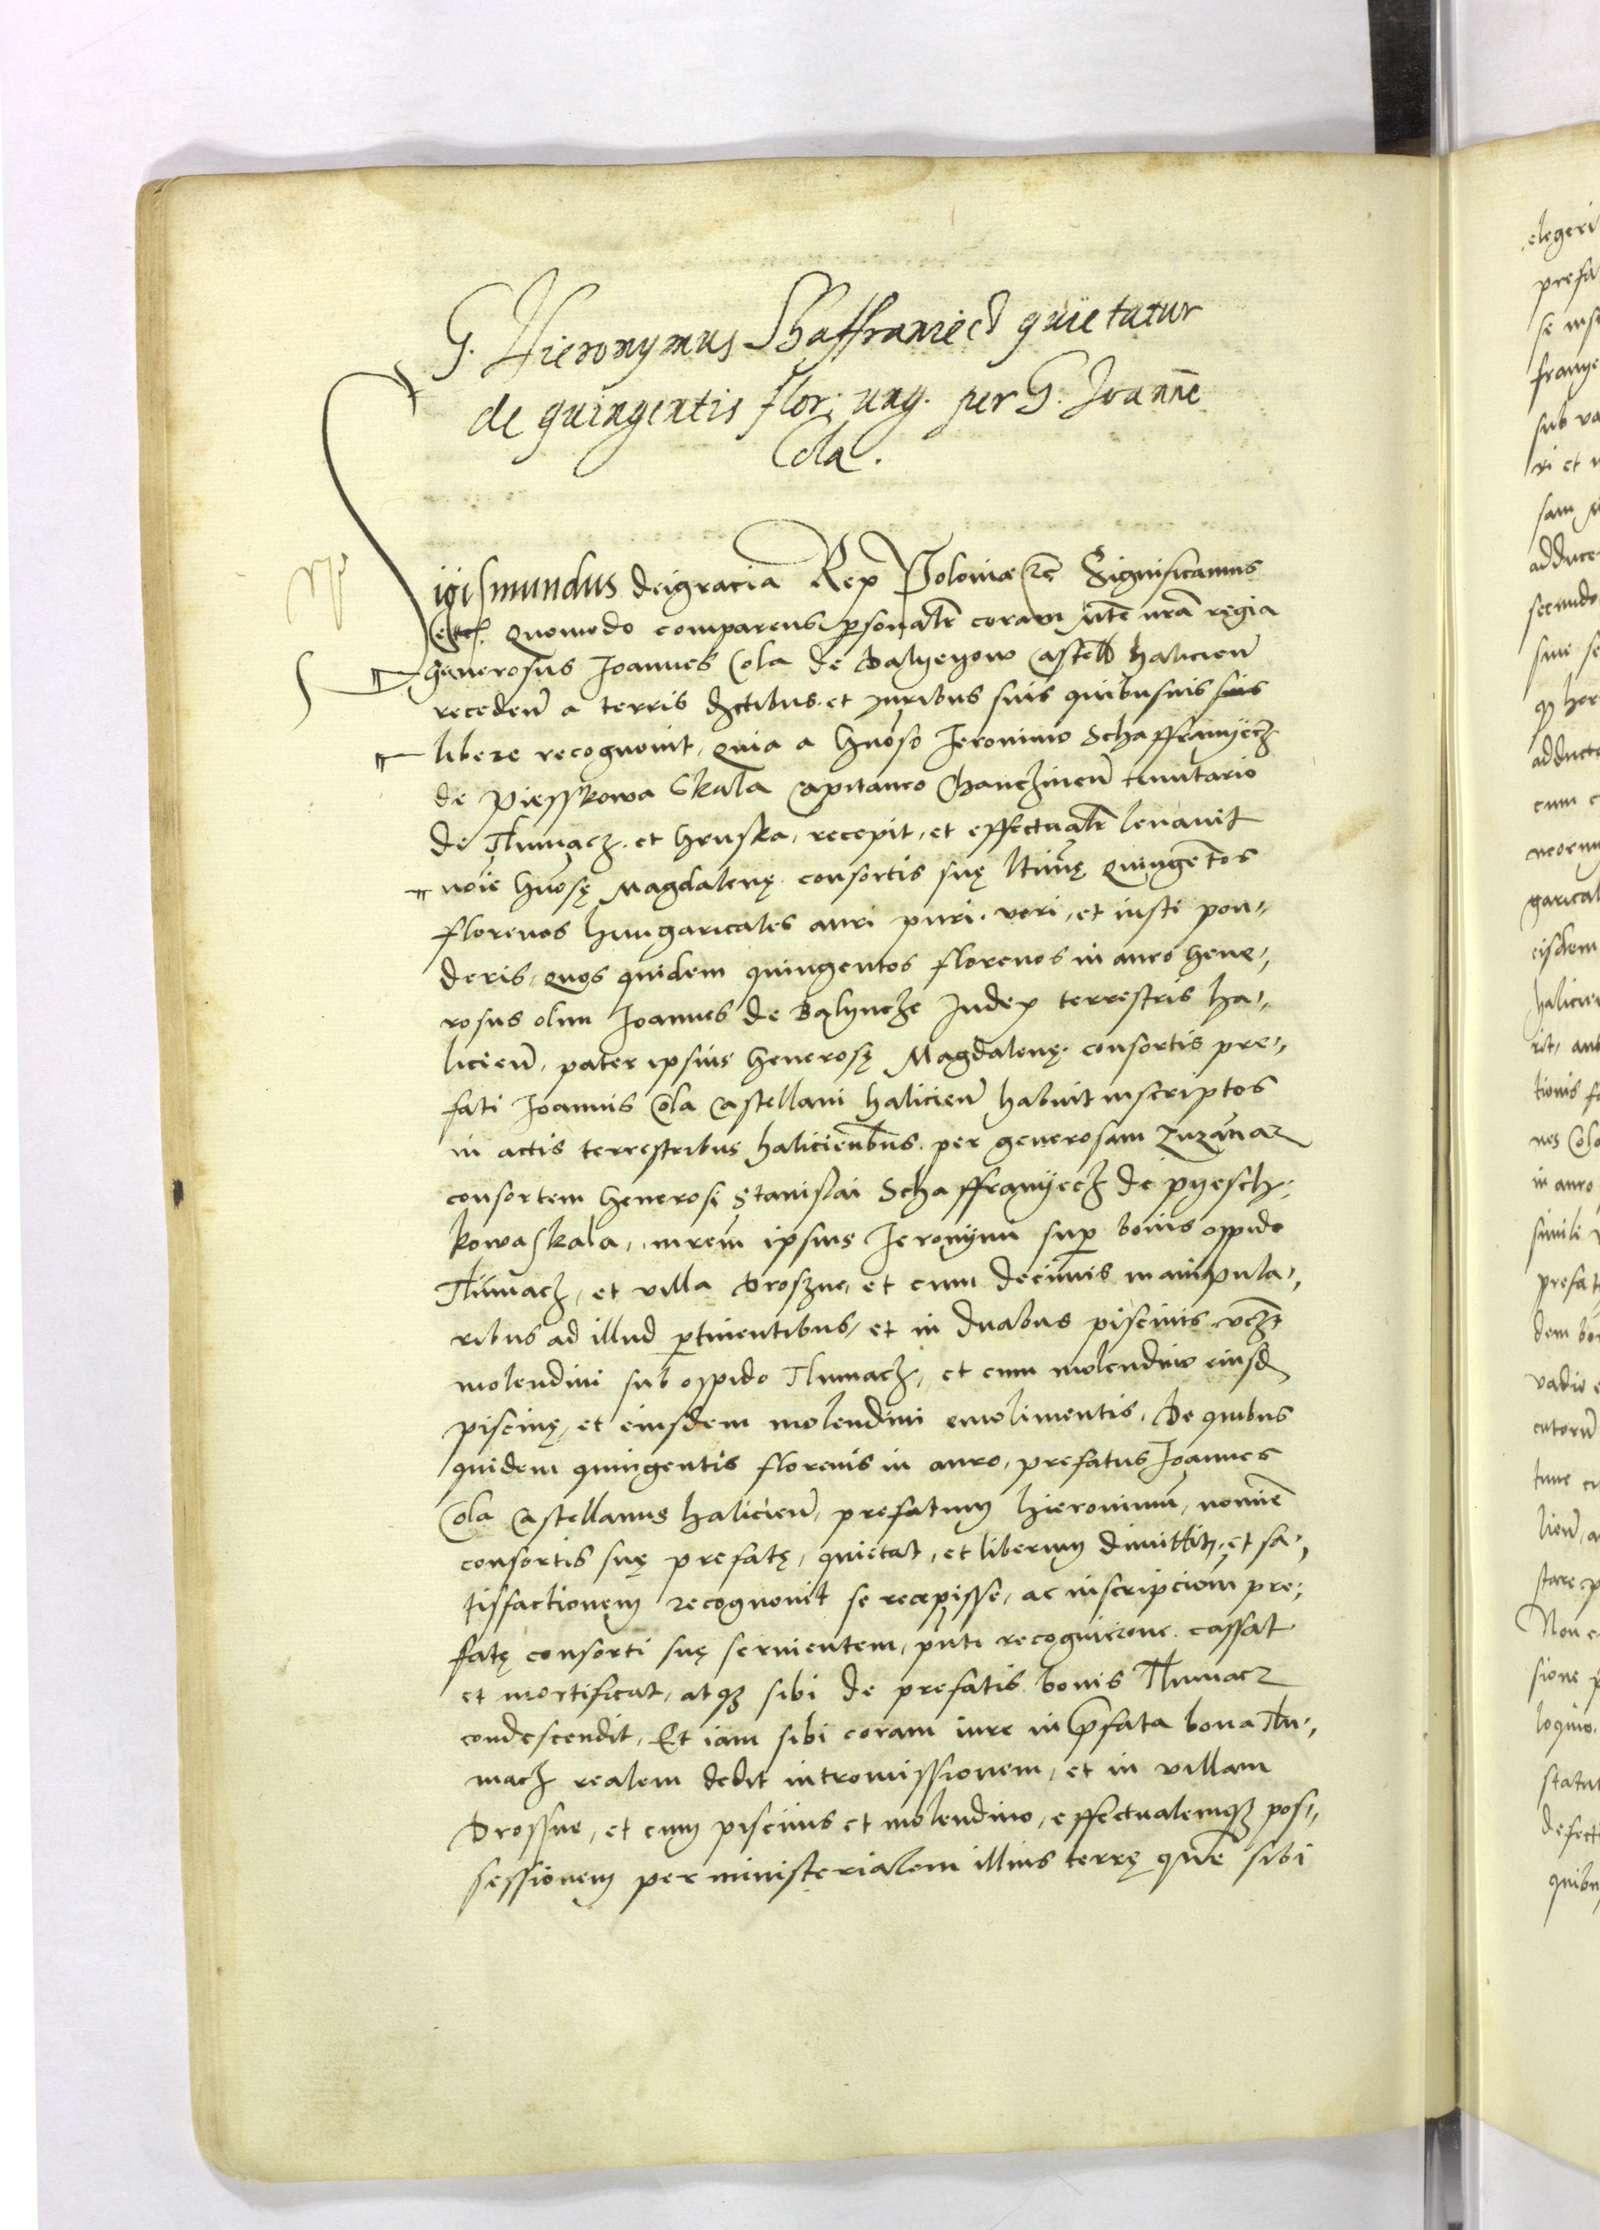 G. Hieronymus Shaffraniecz quietatur
de quingentis flor: ung. per G. Joanne
Cola.
Sigismundus deigracia Rex Poloniæ etc̃ Significamus
etc. Quomodo comparens p̱sonalr̃ coram mtẽ nrã regia
Generosus Joannes Cola de Dalyeyow Castell̃ halicieñ
recedeñ a terris dictibus et juribus suis quibusuis
libere recognouit, Quia a gñoso Jeronimo Schaffranyecz
de Piesskowa Skala Capitaneo Chanczineñ tenutario
de Tlumacz et hruska, recepit, et effectualr̃ leuauit
noĩe gñosę Magdalenę consortis suę ltimę Quingẽtos
florenos hungaricales auri puri, veri, et iusti pon-
deris, quos quidem quingentos florenos in auro gene-
rosus olim Joannes de Balyncze Judex terrestris ha-
licieñ, pater ipsius generosę Magdalenę consortis pre-
fati Joannis Cola Castellani halicieñ habuit inscriptos
in actis terrestribus halicieñbus per generosam Zuzañaz
consortem generosi Stanislai Schaffranyecz de pyesch-
kowa skala, mrem̃ ipsius Jeronymi sup̱ bonis oppido
Tlumacz, et villa Droszne, et cum decimis manipula-
ribus ad illud p̱tinentibus, et in duabus piscinis vcz̃
molendini sub oppido Tlumacz, et cum molendino eiusd
piscinę, et eiusdem molendini emolimentis, De quibus
quidem quingentis florenis in auro, prefatus Joannes
Cola Castellanus halicieñ, prefatum hieronimũ, nomiẽ
consortis suę prefatę, quietat, et liberum dimittit, et sa-
tisfactionem recognouit se recepisse, ac inscripcioñ pre-
fatę consorti suę seruientem, pñti recognicione cassat
et mortificat, atqz sibi de prefatis bonis Tlumacz
condescendit, Et iam sibi coram iure in p̃fata bona Tlu-
macz realem dedit intromissionem, et in villam
Drossne, et cum piscinis et molendino, effectualemqz pos-
sessionem per ministerialem illius terrę quẽ sibi